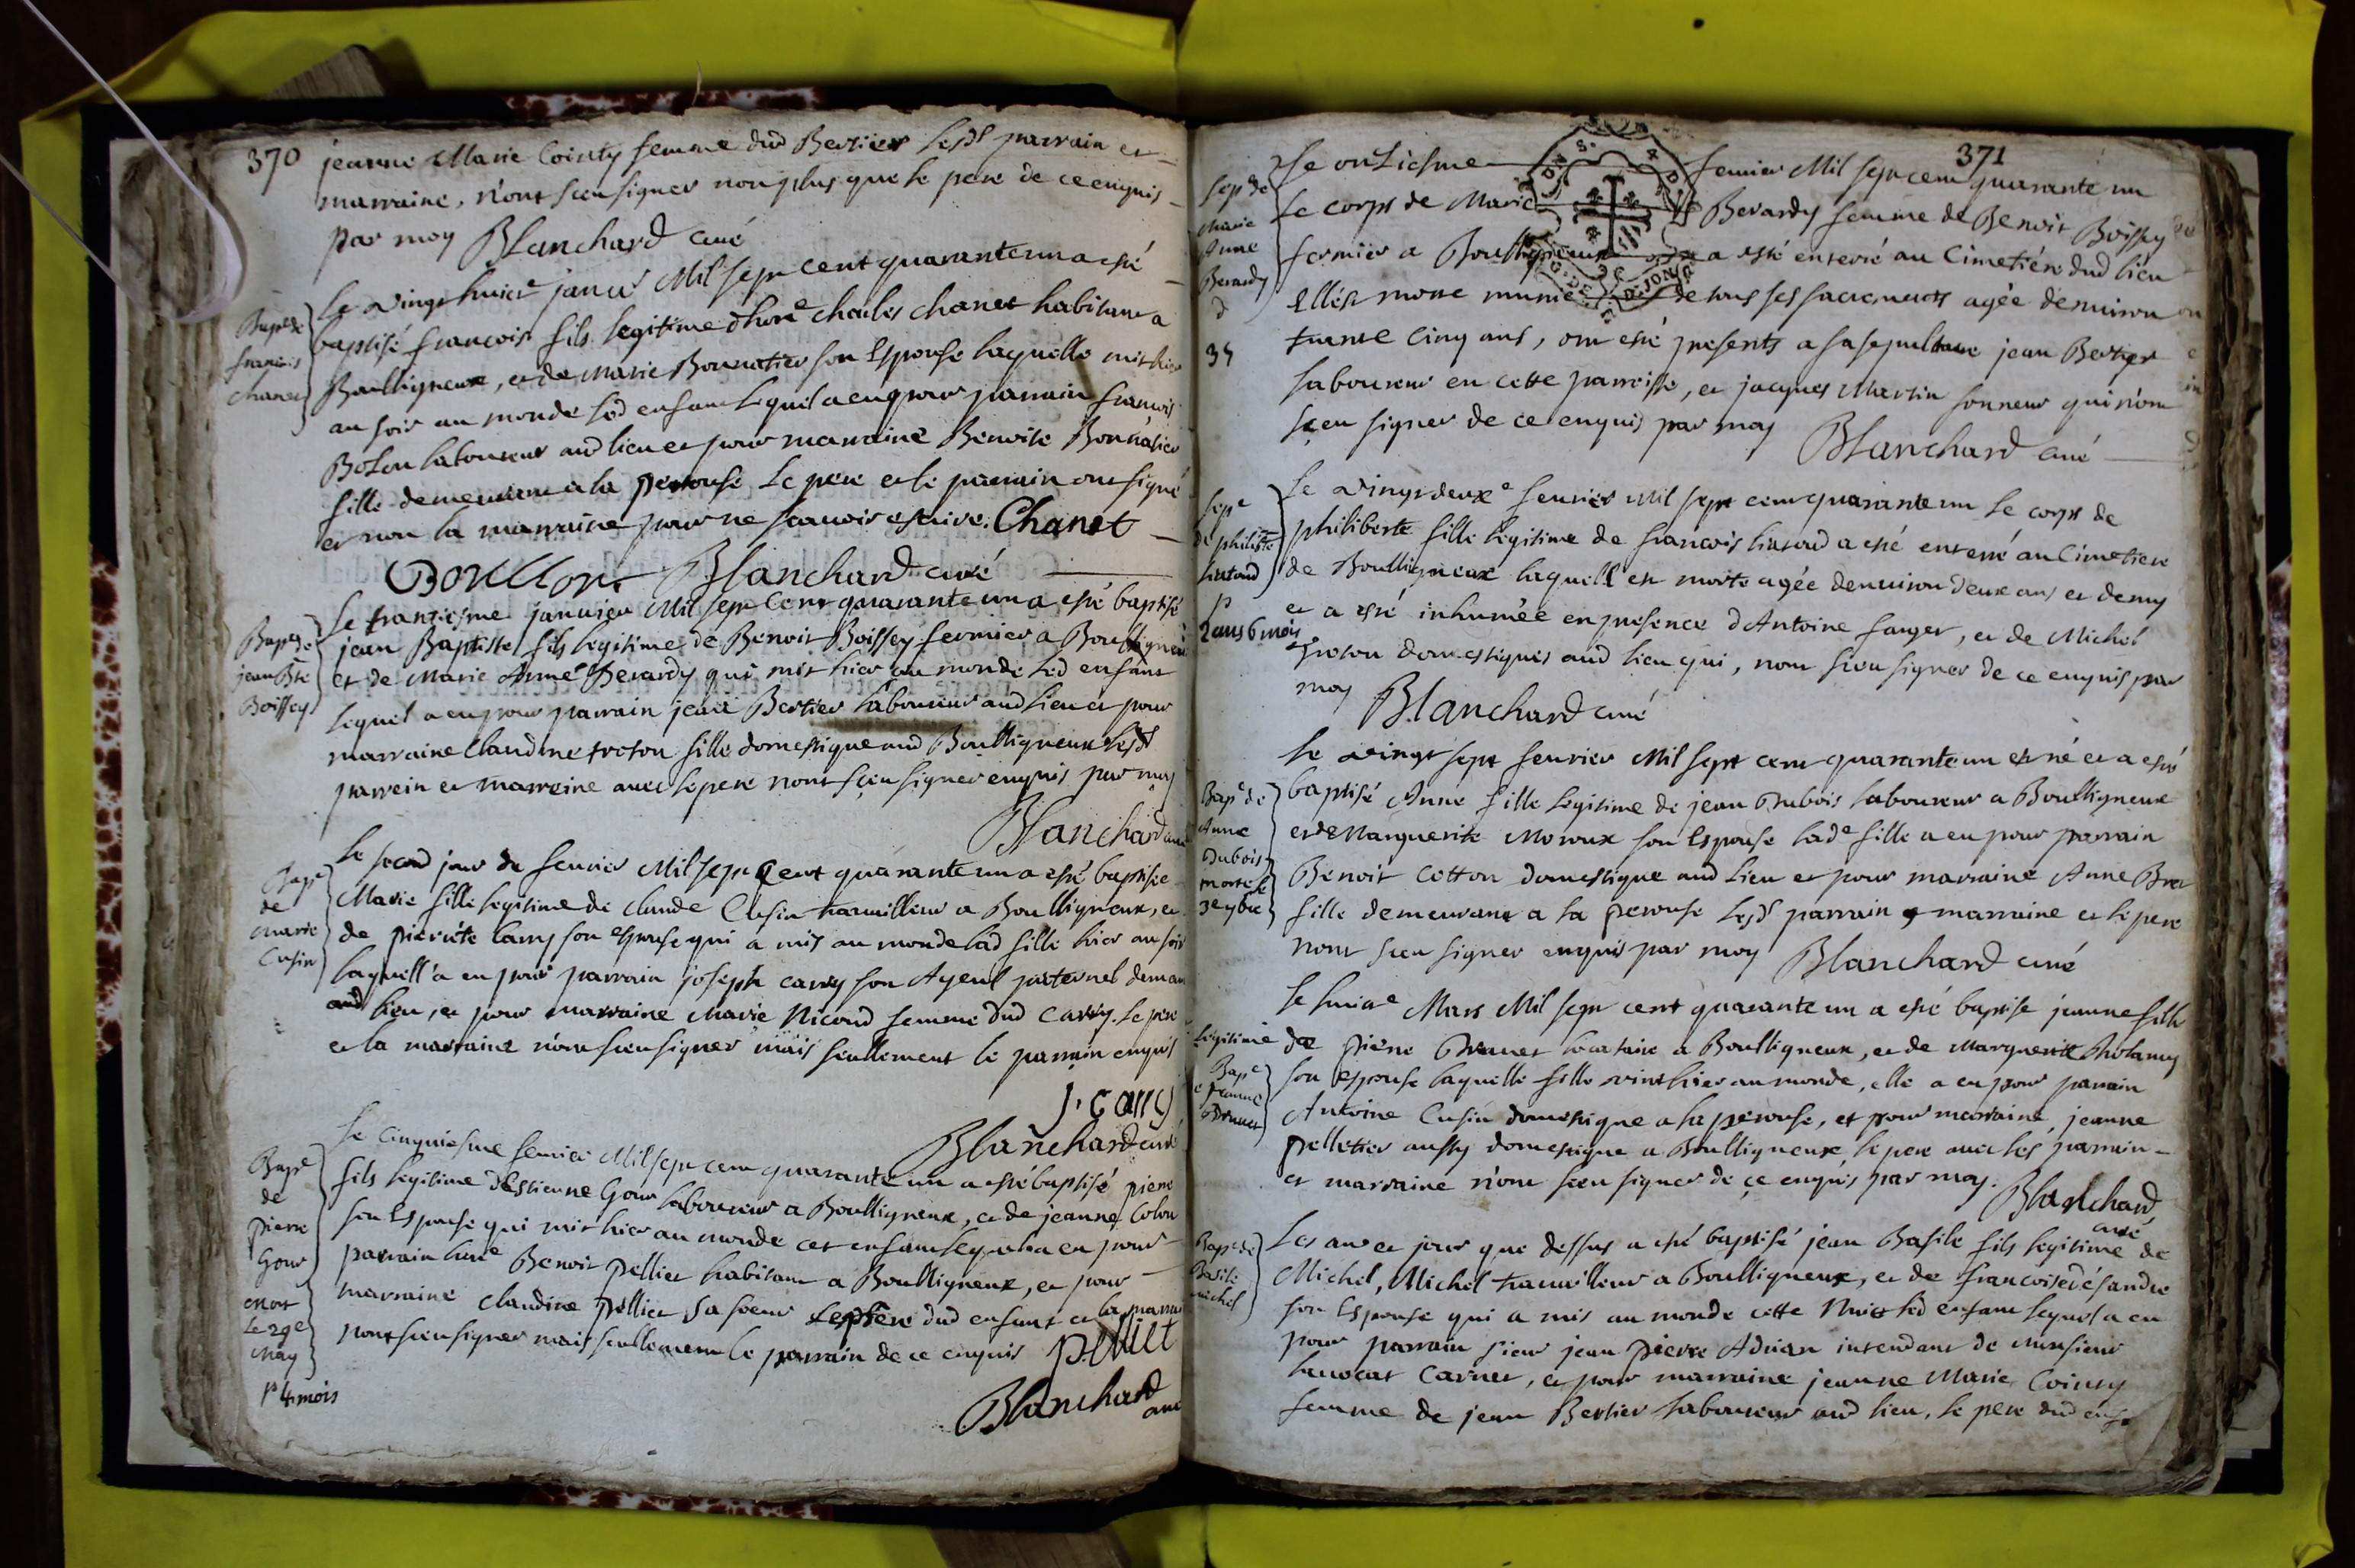 370
jeanne Marie Cointy femme dud Bertier lesds parrain et
marraine, n'ont sceu signer non plus que le pere de ce enquis
par moy Blanchard curé
Bapt de
francois
chanet
le vingt huict janv Mil sept cent quarante un a esté
baptisé francois fils legitime d'hon charles chanet habitant a
Boulligneux, et de Marie Bonnatier son Espouse laquelle mit hier
au soir au monde led enfant lequel a eu pour parrain francois
laboureur aud lieu et pour marraine Benoite Bonnatier
fille demeurant a la perouse le pere et le parrain ont signé
et non la marraine pour ne scavoir escrire. Chanet
Blanchard curé
Bapt de
jean Bte
Boissey
le trantiesme janvier Mil sept Cent quarante un a esté baptisé
jean Baptiste fils legitime de Benoit Boissey fermier a Boulligneu
et de Marie Anne Berardy qui mit hier au monde led enfant
lequel a eu pour parrain jean Bertier laboureur aud lieu et pour
marraine Claudine troton fille domestique aud Boulligneux lesds
parrein et marreine avec le pere n'ont sceu signer enquis par moy
Blanchard curé
Bapt
de
marie
Cusin
le second jour de fevrier Mil sept Cent quarante un a esté baptisée
Marie fille legitime de claude Cusin travailleur a Boulligneux, et
de pierrete lamy son espouse qui a mis au monde lad fille hier au soir
laquell'a eu pour parrain joseph carry son Ayeul paternel demeu
aud lieu, et pour marraine Marie Nicoud femme dud Carry. le pere
et la marraine n'ont sceu signer mais seullement le parrain enquis
j. carry
Blanchard curé
Bapt
de
pierre
Gour
mort
le 29e
may
p 4 mois
le cinquiesme fevrier Mil sept cent quarante un a esté baptisé pierre
fils legitime d'Estienne Gour laboureur a Boulligneux, et de jeanne Colon
son Espouse qui mit hier au monde cet enfant lequel a eu pour
parrain hon Benoit pelliet habitant a Boulligneux, et pour
marraine claudine pelliet sa soeur le pere dud enfant et la marrai
n'ont sceu signer mais seullement le parrain de ce enquis pelliet
Blanchard
curé
371
sep de
Marie
Anne
Berardy
d
35
le onziesme fevrier Mil sept cent quarante un
le corps de Marie Berardy femme de Benoit Boissey
fermier a Boulligneux a esté enterré au Cimetiére dud lieu
Ellést morte munie de tous ses sacrements agée denviron
trante cinq ans, ont esté presents a sa sepulture jean Bertier
laboureur en cette parroisse, et jacques Martin sonneur qui n'ont
sceu signer de ce enquis par moy Blanchard curé
sep
de philibte
p
2 ans 6 mois
le vingt deux fevrier Mil sept cent quarante un le corps de
philiberte fille legitime de francois a esté enterré au Cimetiere
de Boulligneux laquell'est morte agée denviron deux ans et demy
et a esté inhumée en presence d'Antoine farget, et de Michel
troton domestiques aud lieu qui, n'ont sceu signer de ce enquis par
moy Blanchard curé
Bapt de
Anne
Dubois
morte le
3e
le vingt sept fevrier Mil sept cent quarante un est né et a esté
baptisé Anne fille legitime de jean Dubois laboureur a Boulligneux
et de Marguerite Moroux son Espouse lade fille a eu pour parrain
Benoit Cotton domestique aud lieu et pour marraine Anne
fille demeurant a la perouse lesds parrain & marraine et le pere
n'ont sceu signer enquis par moy Blanchard curé
le huict Mars Mil sept cent quarante un a esté baptise jeanne fille
legitime de pierre locataire a Boulligneux, et de Marguerite
Bapt
jeanne
son espouse laquelle fille vint hier au monde, elle a eu pour parrain
Antoine Cusin domestique a la perouse, et pour marraine, jeanne
pelletier aussy domestique a Boulligneux le pere avec les parrain
et marraine n'ont sceu signer de ce enquis par moy. Blanchard
curé
Bapt de
Basile
michel
Les an et jour que dessus a esté baptisé jean Basile fils legitime de
Michel, Michel travailleur a Boulligneux, et de francoise
son Espouse qui a mis au monde cette Nuit led enfant lequel a eu
pour parrain sieur jean pierre Adrian intendant de Monsieur
lavocat Carner, et pour marraine jeanne Marie Cointy
femme de jean Bertier laboureur aud lieu, le pere dud enf